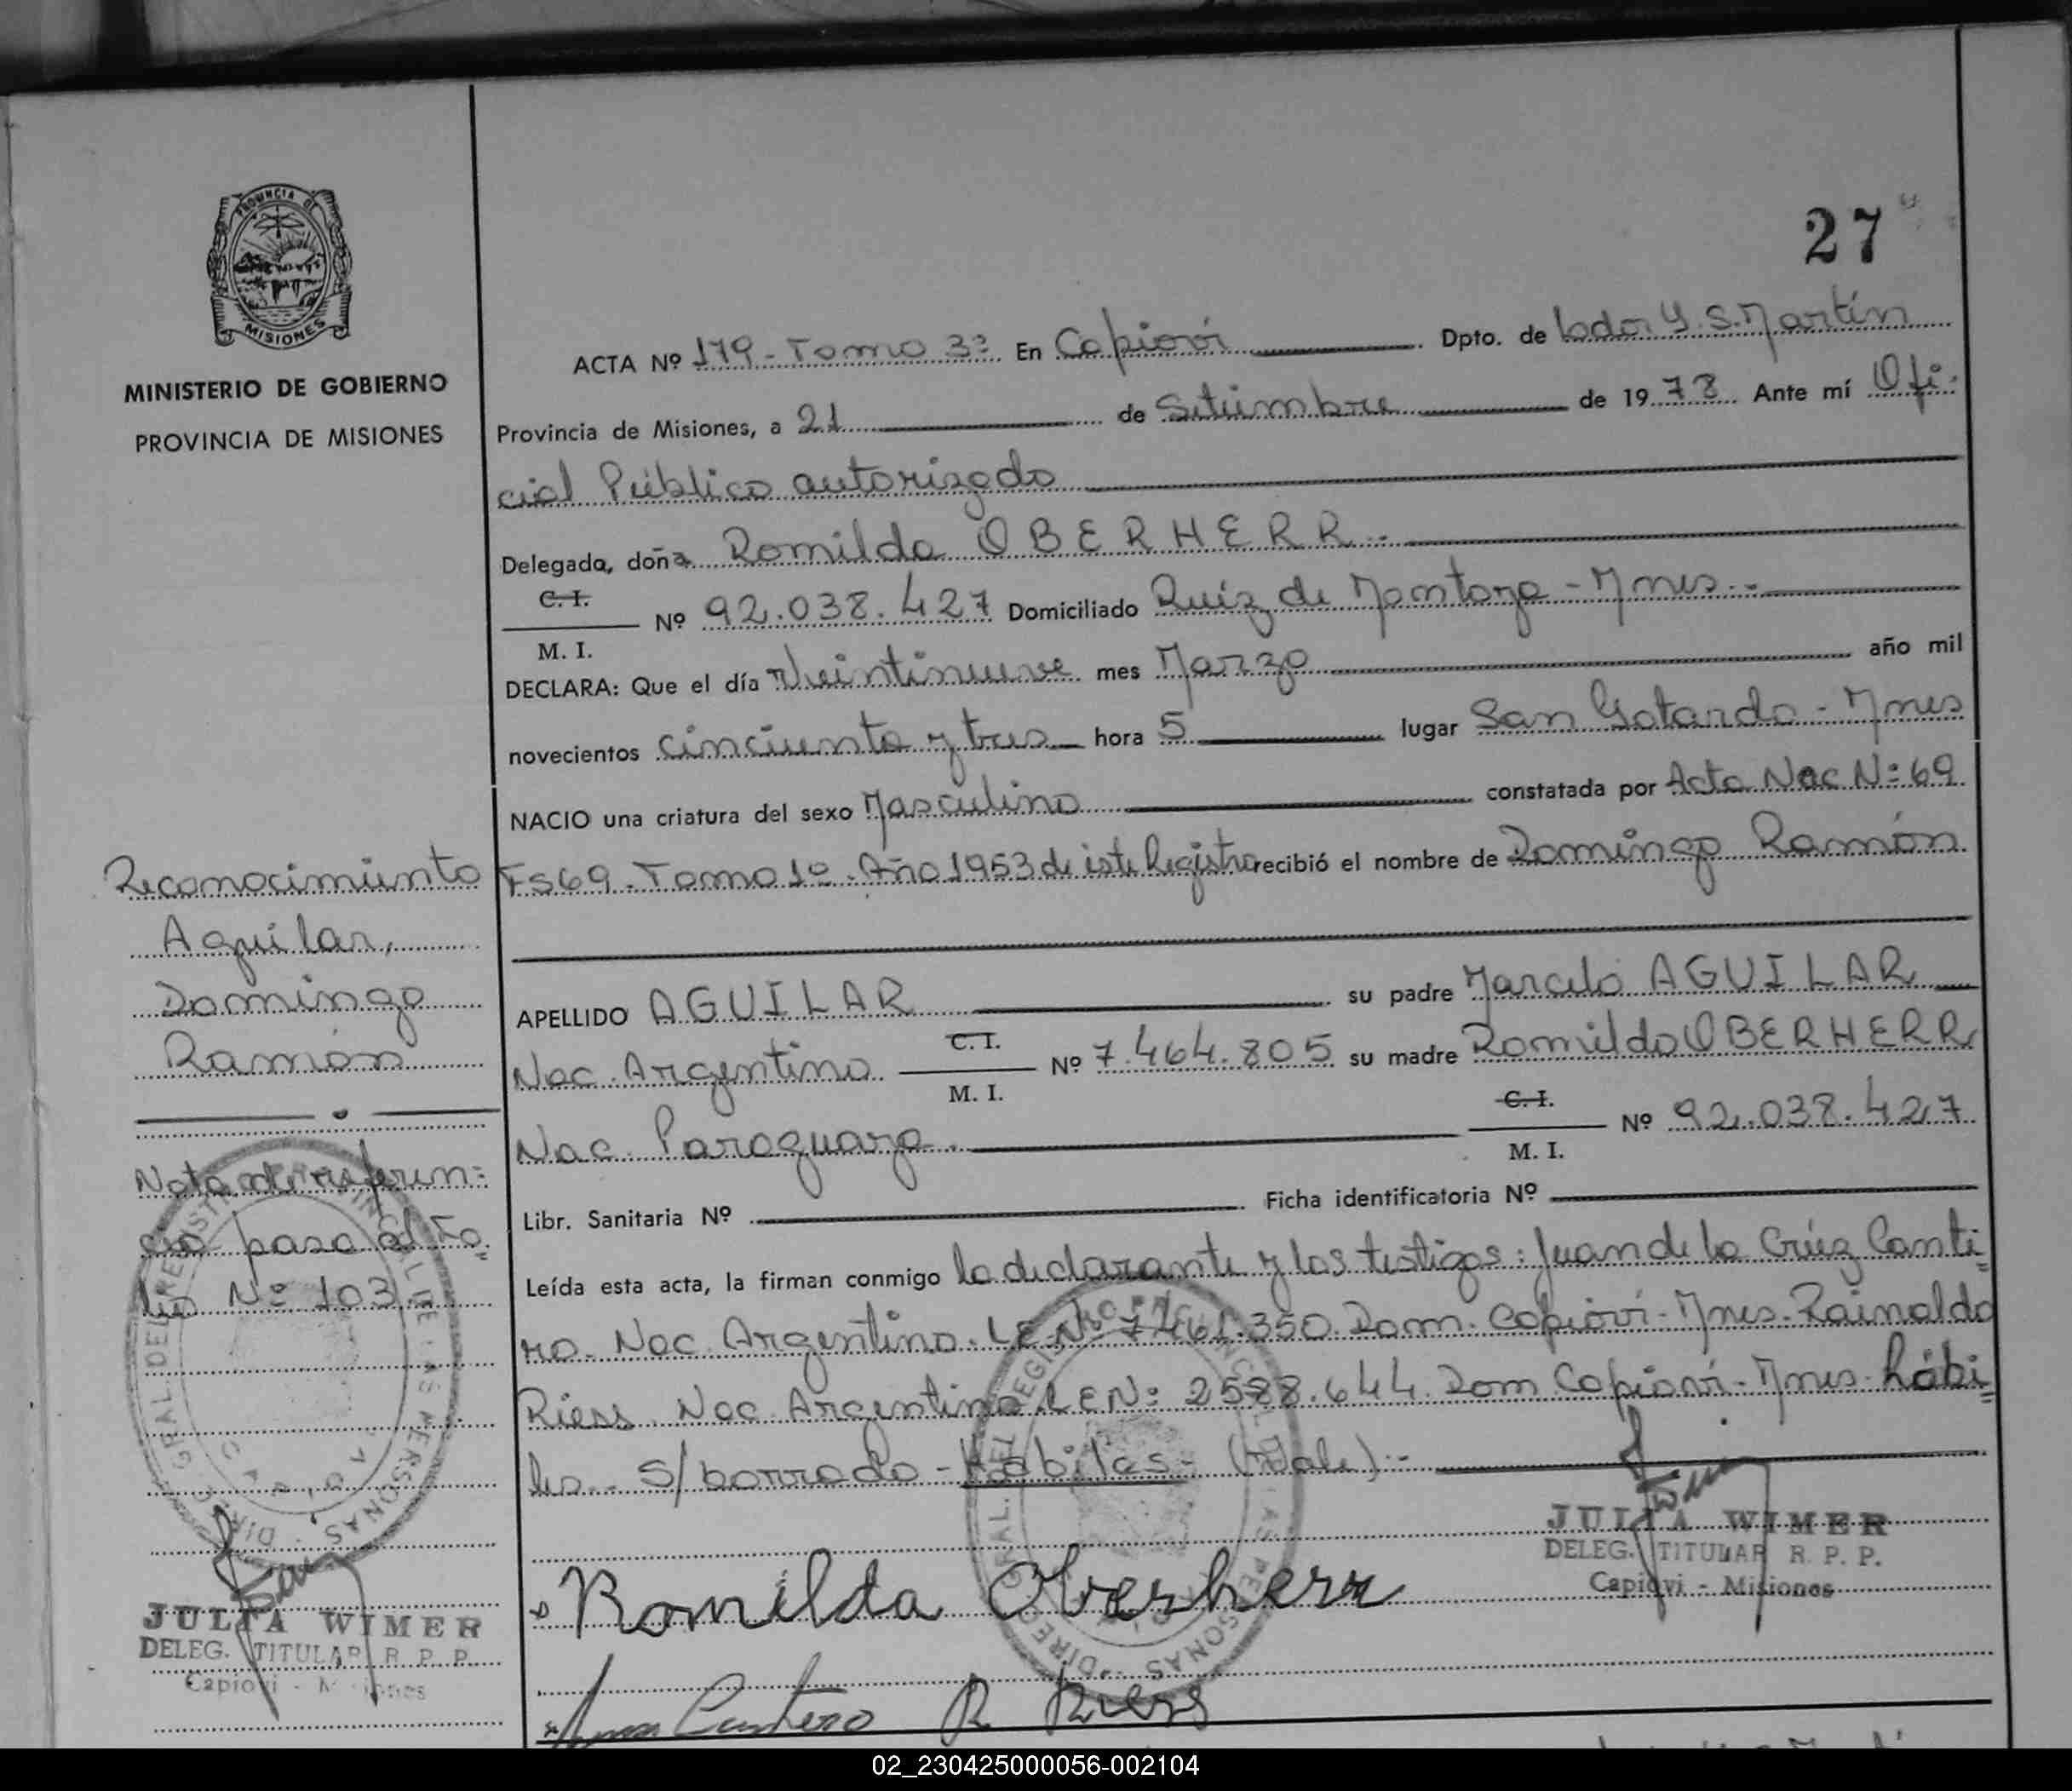 PROVINCIA DE
MISIONES
MINISTERIO DE GOBIERNO
PROVINCIA DE MISIONES
27
ACTA Nº 179 - Tomo 3º En Capioví Dpto. de Ldor G. S. Martín
Provincia de Misiones, a 21 de Setiembre de 1978 Ante mí Ofi-
cial Público autorizado
Delegada, doña Romilda OBERHERR.-
C. I.
M. I. Nº 92.038.427 Domiciliado Ruíz de Montoya - Mnes.-
DECLARA: Que el día Veintinueve mes Marzo año mil
novecientos cincuenta y tres hora 5 lugar San Gotardo - Mnes
NACIO una criatura del sexo Masculino constatada por Acta Nac Nº 69
Fs 69 - Tomo 1º - Año 1953 de este Registro recibió el nombre de Domingo Ramón
APELLIDO AGUILAR su padre Marcelo AGUILAR
Nac. Argentino C. I.
M. I. Nº 7.464.805 su madre Romilda OBERHERR
Nac. Paraguaya. C. I.
M. I. Nº 92.038.427
Libr. Sanitaria Nº Ficha identificatoria Nº
Leída esta acta, la firman conmigo la declarante y los testigos: Juan de la Crúz Canti=
ro. Nac. Argentino. L.E. Nº 7.461.350. Dom. Capioví - Mnes - Rainoldo
Riess. Nac. Argentino L E Nº 2588.644. Dom Capioví - Mnes - hábi=
les.- S/borrado - hábiles - (Vale).-
Romilda Oberherr
R Riess
JULIA WIMER
DELEG. TITULAR R. P. P.
Capioví - Misiones
Reconocimiento
Aguilar,
Domingo
Ramón
Nota de referen=
cia pasa al Fo=
lio Nº 103
JULIA WIMER
DELEG. TITULAR R. P. P.
Capioví - Misiones
02_230425000056-002104